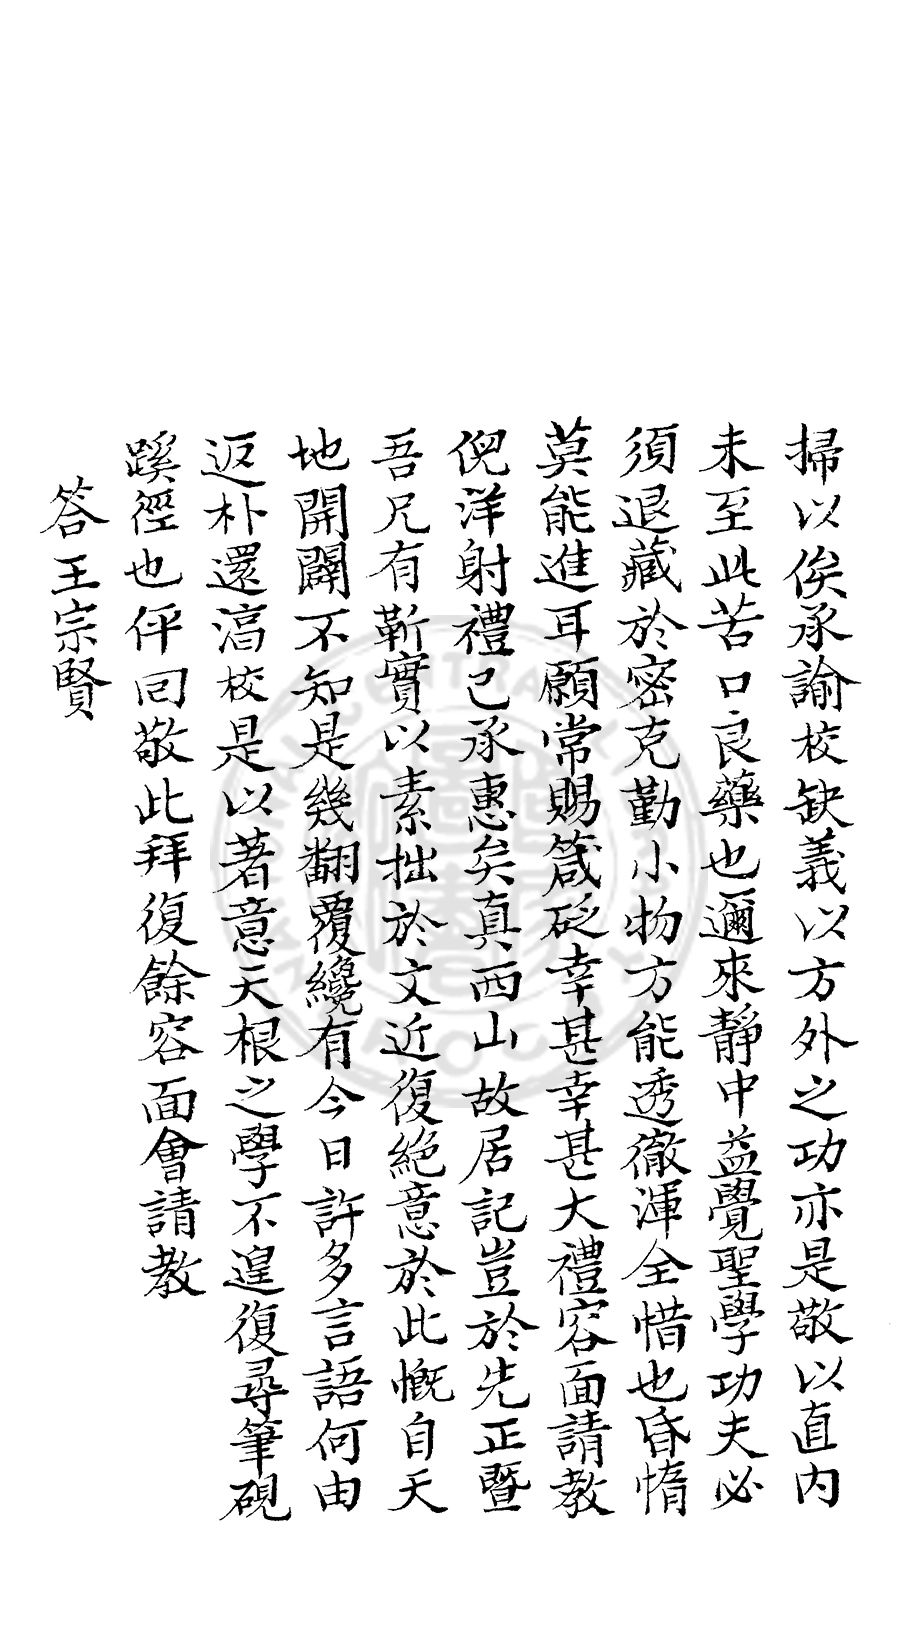 掃以俟承諭校缺義以方外之功亦是敬以直内
未至此苦口良藥也邇來靜中益覺聖學功夫必
須退藏於密克勤小物方能透徹渾全惜也昏惰
莫能進耳願常賜箴砭幸甚幸甚大禮容面請教
倪洋射禮已承惠矣真西山故居記豈於先正暨
吾兄有靳實以素拙於文近復絶意於此慨自天
地開闢不知是幾翻覆纔有今日許多言語何由
返朴還滈校是以著意天根之學不遑復尋筆硯
蹊徑也伻回敬此拜復餘容面會請教
答王宗賢